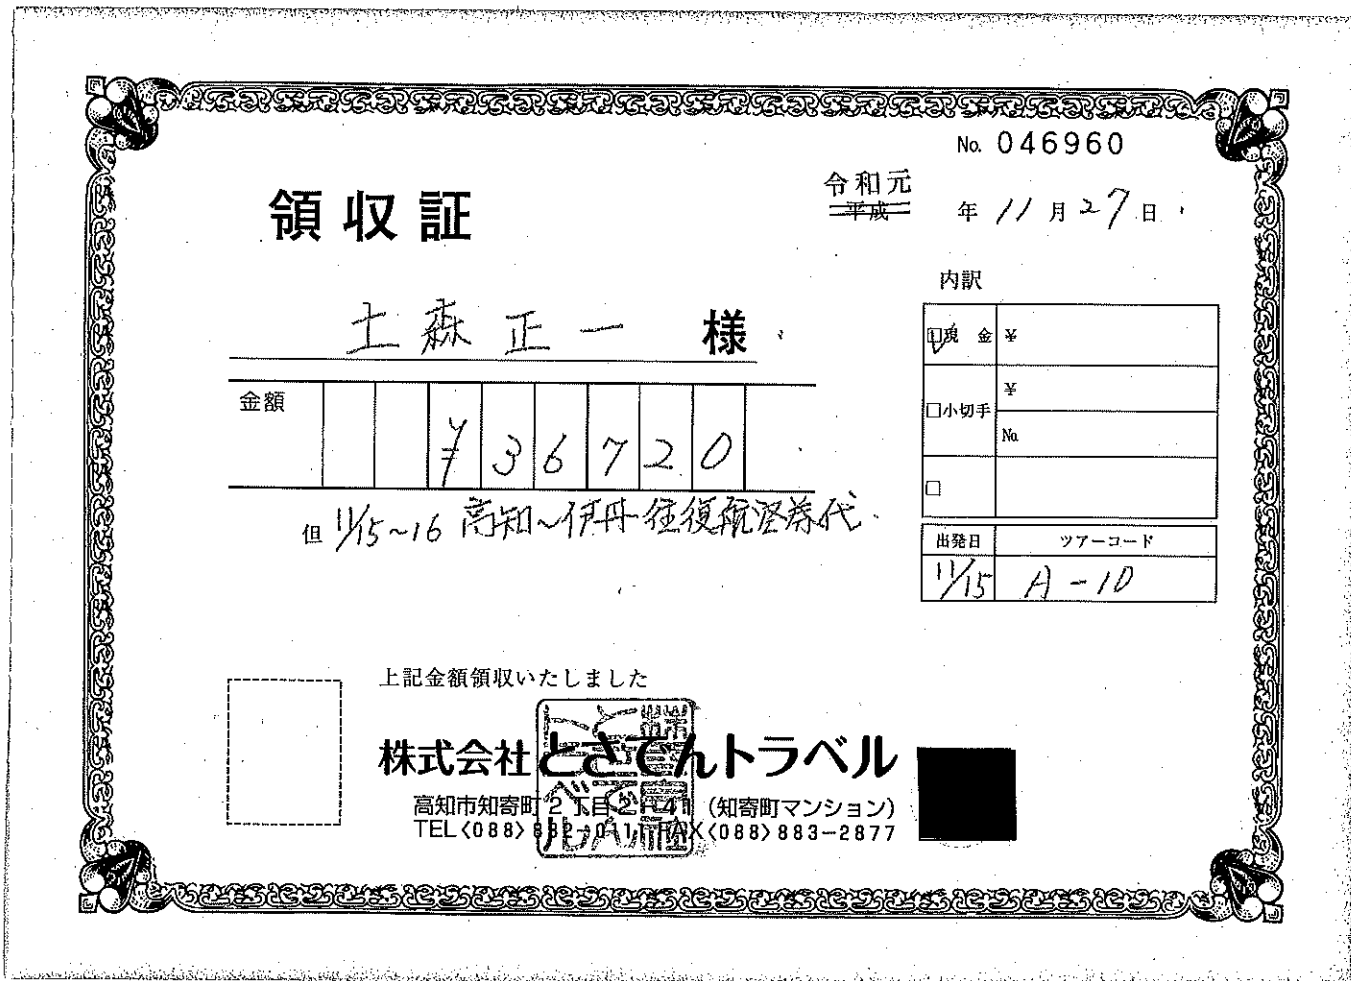 No. 046960
領収証
令和元
平成 年 11 月 27 日
土森正一 様
金額 ¥36720
但 11/15~16 高知~伊丹往復航空券代
内訳
□現 金 ¥
□小切手 ¥
No.
□
出発日 ツアーコード
11/15 A-10
上記金額領収いたしました
株式会社とさでんトラベル
高知市知寄町2丁目 (知寄町マンション)
FAX<088>883-2877